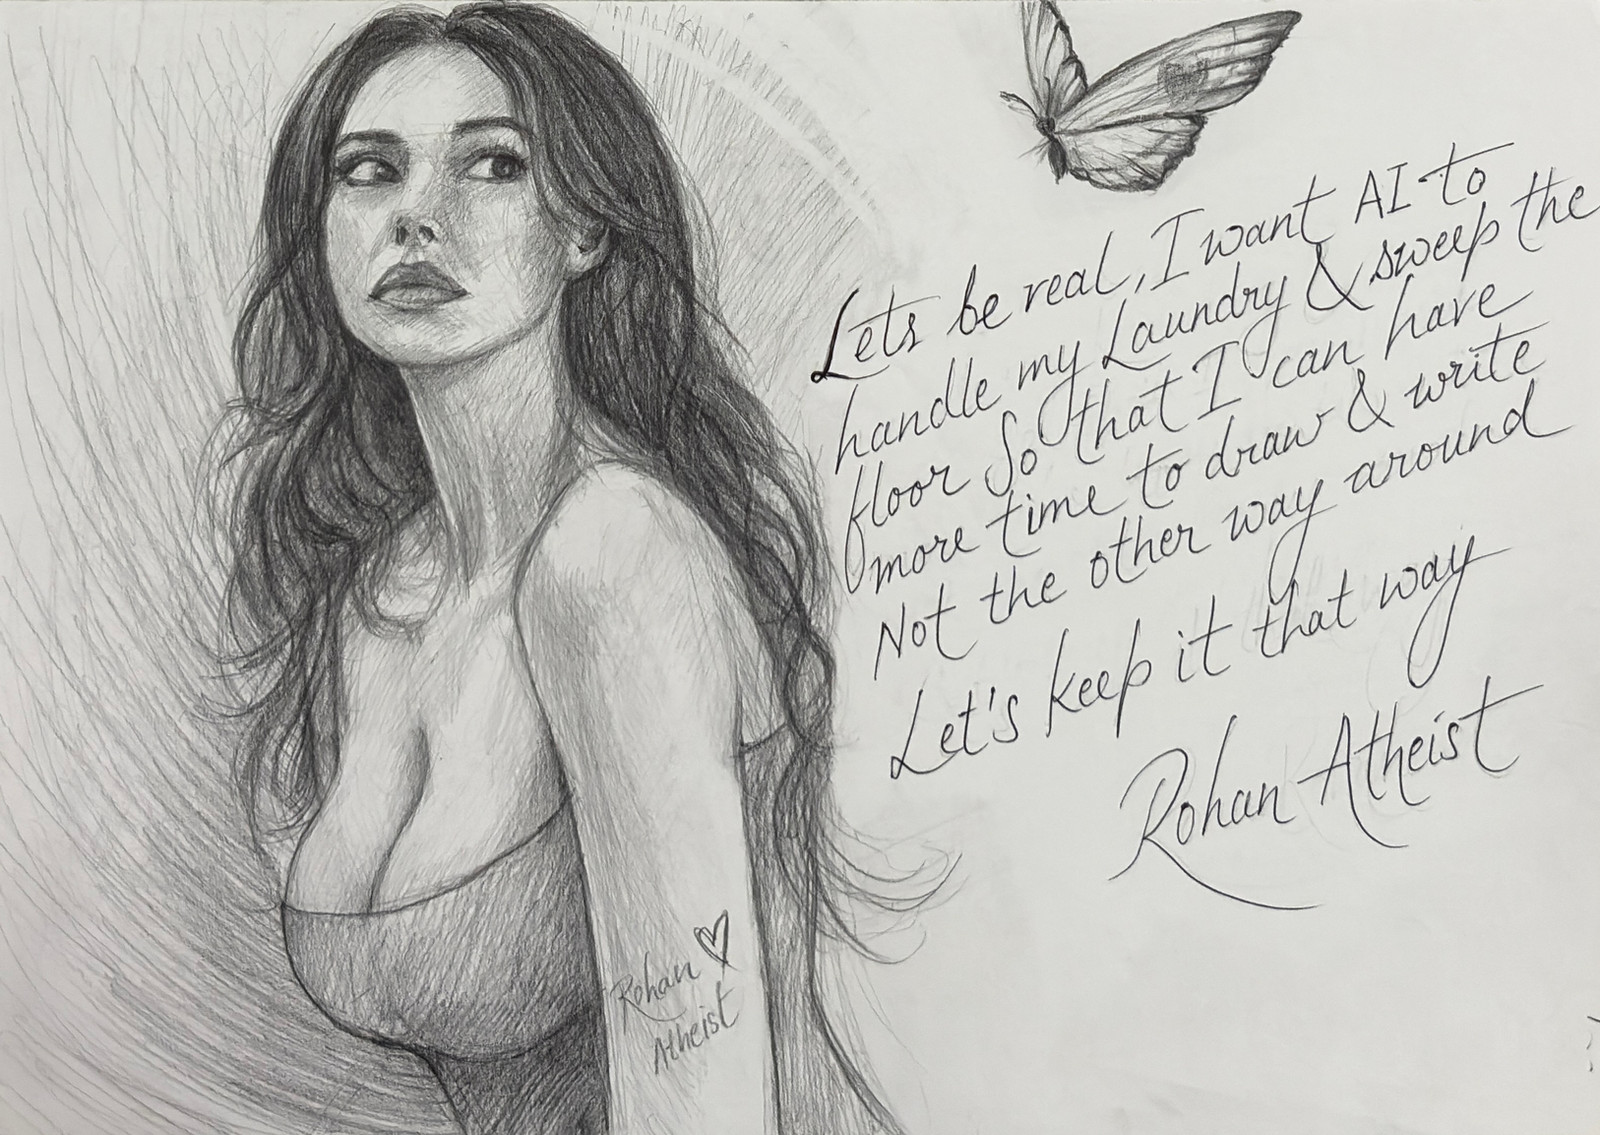 Lets be real, I want AI to
handle my Laundry & sweep the
floor So that I can have
more time to draw & write
Not the other way around
Let's keep it that way
Rohan Atheist
Rohan ♡
Atheist